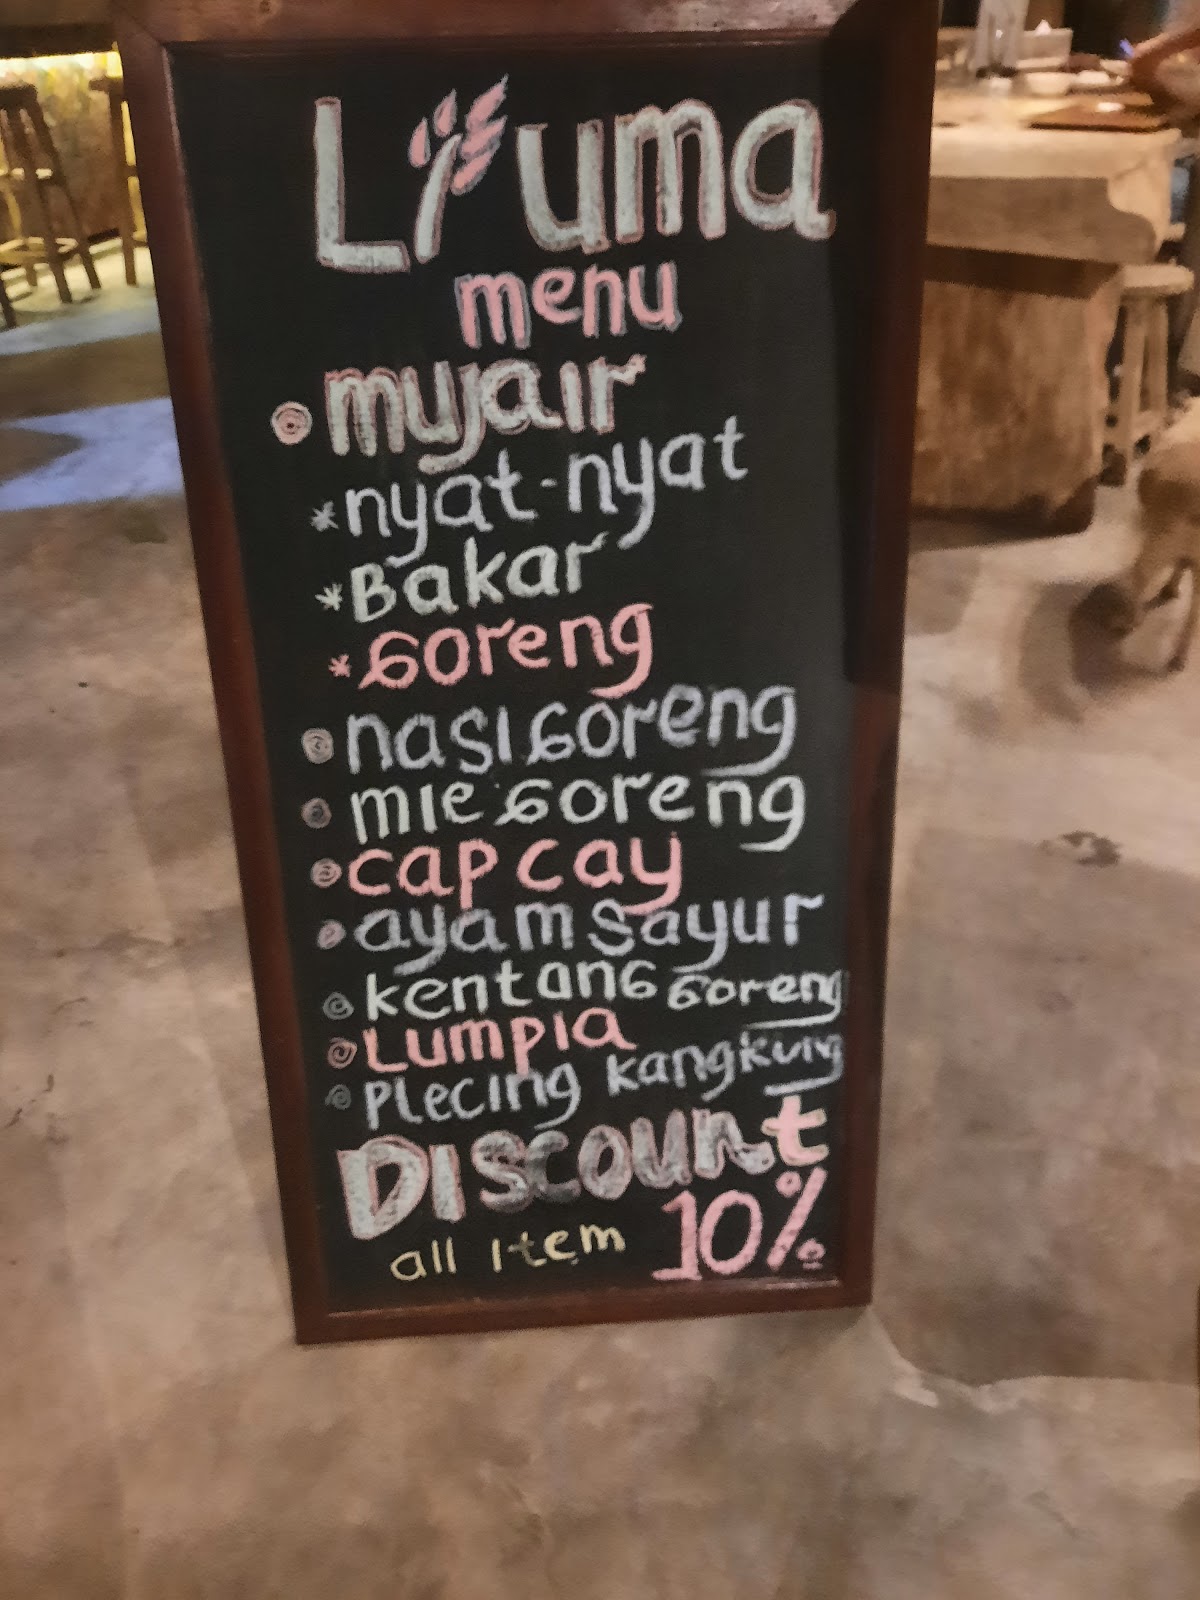 Liuma
menu
mujair
*nyat-nyat
*Bakar
*Goreng
nasi Goreng
mie Goreng
cap cay
ayam sayur
kentang Goreng
Lumpia
Plecing kangkung
DIscount
all Item 10%